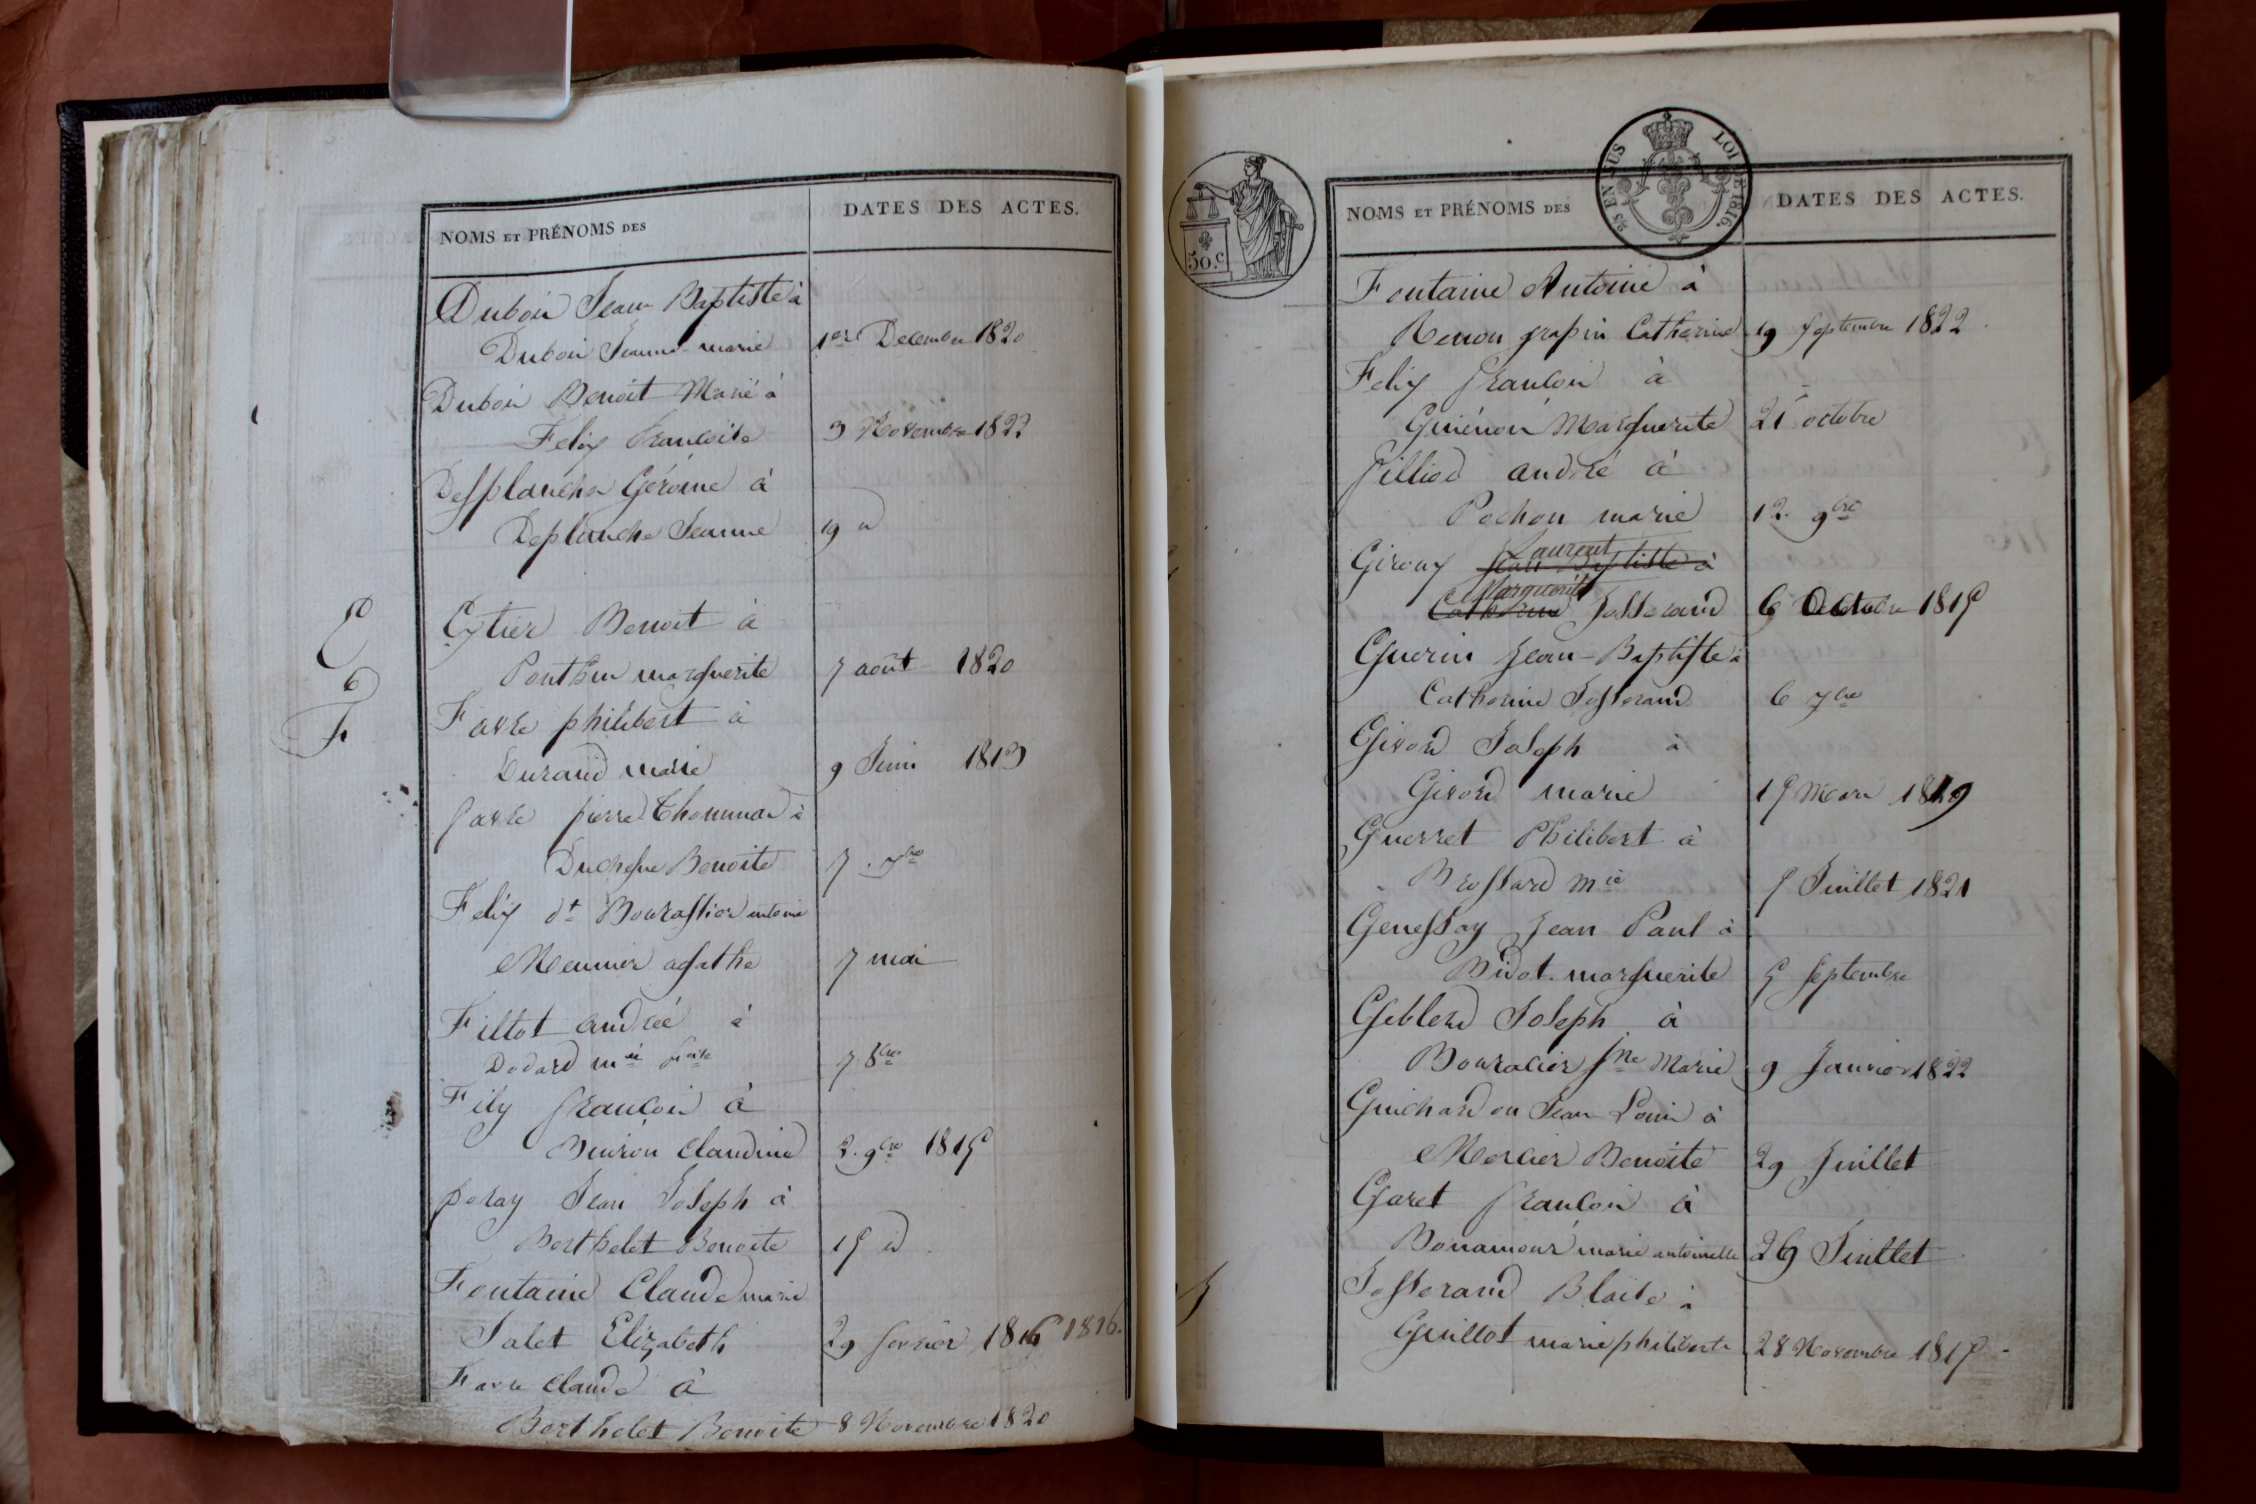 NOMS ET PRÉNOMS DES
DATES DES ACTES.
Dubois Jean Baptiste à
Dubois Jeanne marie 1er Decembre 1820
Dubois Benoit Marie à
Felix Francoise 9 Novembre 1822
Desplanche Gérome à
Deplanche Jeanne 19 d
E
Eytier Benoit à
Ponthus marguerite 7 août 1820
F
Favre philibert à
Durand marie 9 Juin 1813
favre pierre Thommas à
Duchesne Benoite 7. 7bre
Felix dt Bourassier antoine
Meunier agathe 7 mai
Filtot andrée à
Dodard mie 7 8bre
Fily francois à
Buiron Claudine 2. 9bre 1815
foray Jean Joseph à
Berthelet Benoite 15 d
Fontaine Claude marie
Jalet Elizabeth 29 fevrier 1816 1816.
Favre claude à
Berthelet Benoite 8 Novembre 1820
50.c
25 EN SUS
LOI DE 1816.
NOMS ET PRÉNOMS DES
DATES DES ACTES.
Fontaine Antoine à
Renon grapin Catherine 19 septembre 1822
Felix francois à
Guénon Marguerite 21 octobre
Gilliod andré à
Pochon marie 12. 9bre
Laurent
Giroux Jean Baptiste à
Marguerite
Catherine Josserand 6 Octobre 1815
Guerin Jean-Baptiste à
Catherine Josserand 6 7bre
Girord Joseph à
Girord marie 15 Mars 1819
Guerret Philibert à
Brossard mie 5 Juillet 1821
Genessay Jean Paul à
Bidot marguerite 5 septembre
Geblerd Joseph à
Bouracier jne Marie 9 Janvier 1822
Guichardon Jean Louis à
Mercier Benoite 29 Juillet
Garet francois à
Bonamour marie antoinette 29 Juillet
J
Josserand Blaise à
Guillot marie philiberte 28 Novembre 1815